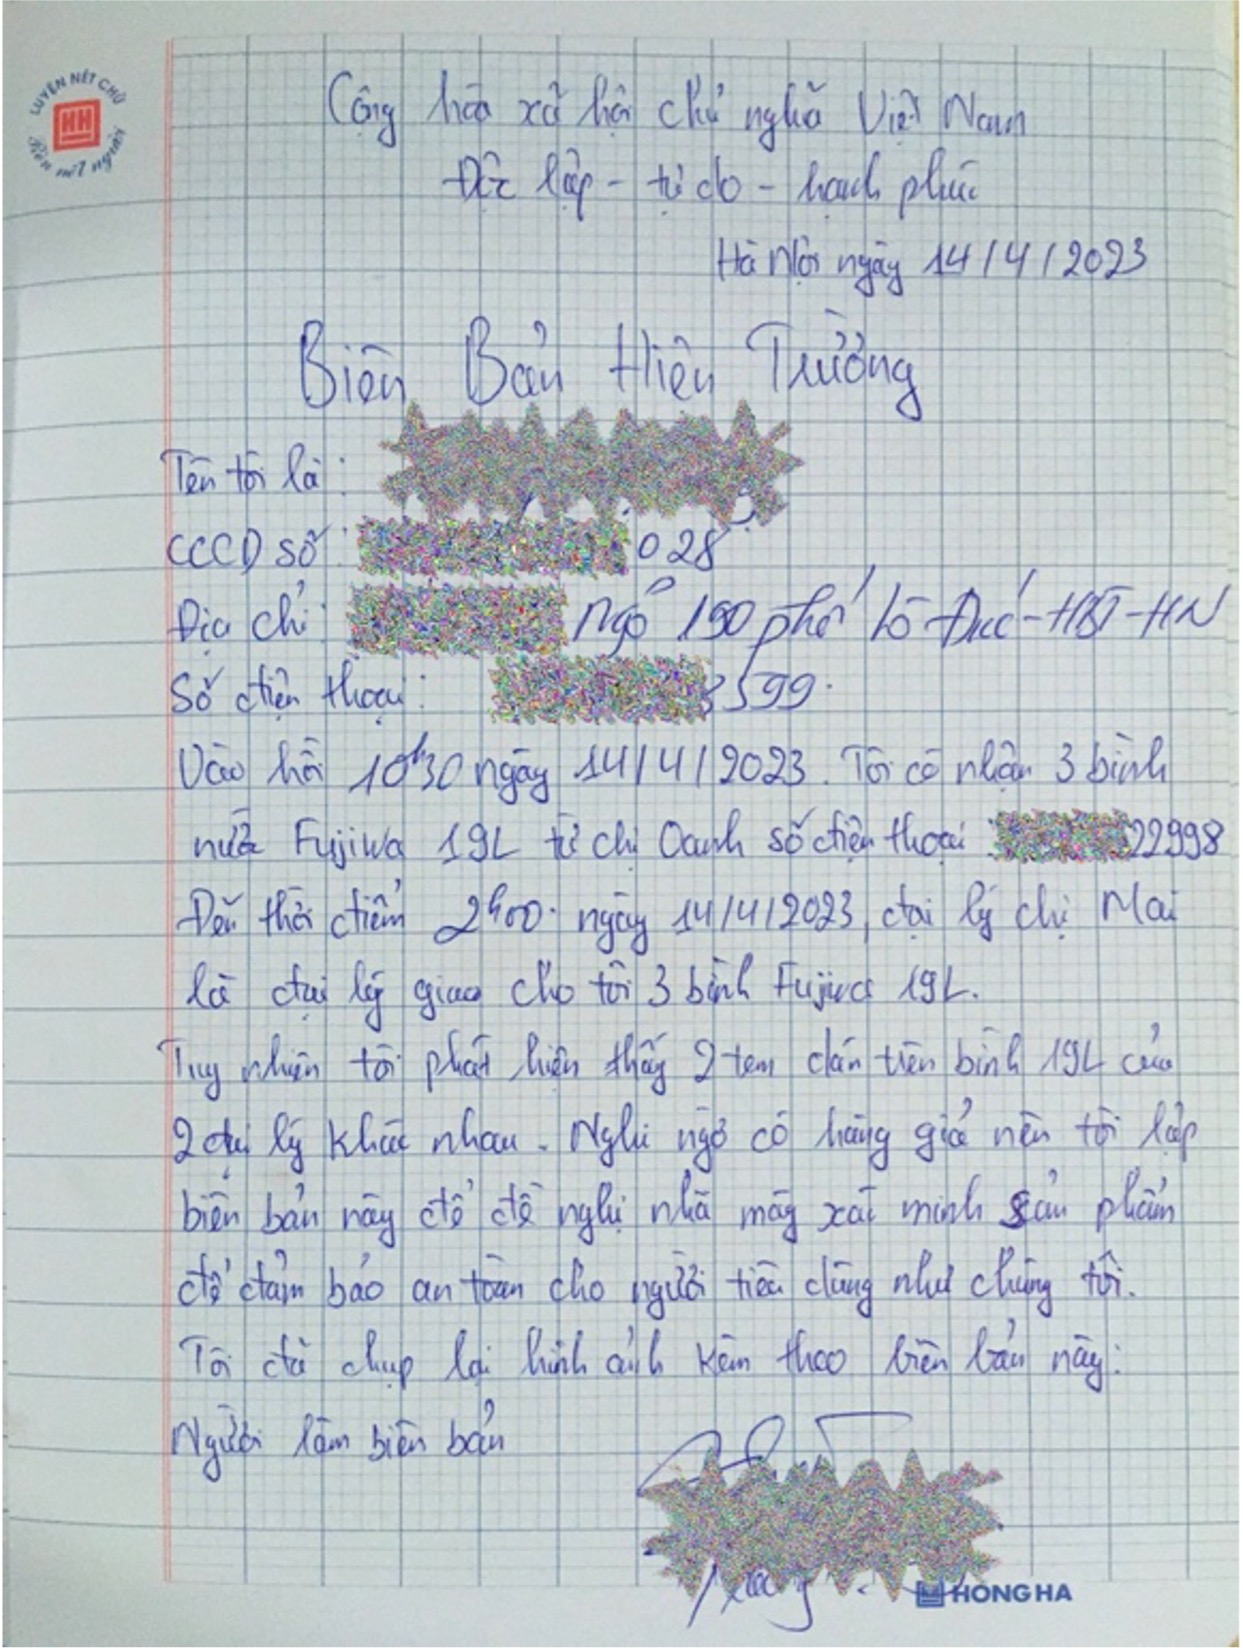 LUYỆN NÉT CHỮ
HH
Rèn nết người
Cộng hòa xã hội chủ nghĩa Việt Nam
Độc lập - tự do - hạnh phúc
Hà Nội ngày 14/4/2023
Biên Bản Hiện Trường
Tên tôi là:
CCCD số: 028
Địa chỉ: Ngõ 190 phố Lò Đúc - HBT - HN
Số điện thoại: 3599.
Vào hồi 10h30 ngày 14/4/2023. Tôi có nhận 3 bình
nước Fujiwa 19L từ chị Oanh số điện thoại 22998
Đến thời điểm 2h00. ngày 14/4/2023, đại lý chị Mai
là đại lý giao cho tôi 3 bình Fujiwa 19L.
Tuy nhiên tôi phát hiện thấy 2 tem dán trên bình 19L của
2 đại lý khác nhau. Nghi ngờ có hàng giả nên tôi lập
biên bản này để đề nghị nhà máy xác minh sản phẩm
để đảm bảo an toàn cho người tiêu dùng như chúng tôi.
Tôi đã chụp lại hình ảnh kèm theo biên bản này:
Người làm biên bản
HONG HA